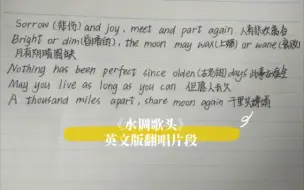 Sorrow (悲伤) and joy, meet and part again 人有悲欢离合
Bright or dim(昏暗的), the moon may wax(上蜡) or wane(衰败)
月有阴晴圆缺
Nothing has been perfect since olden(古老的) days 此事古难全
May you live as long as you can 但愿人长久
A thousand miles apart, share moon again 千里共婵娟
《水调歌头》
英文版翻唱片段